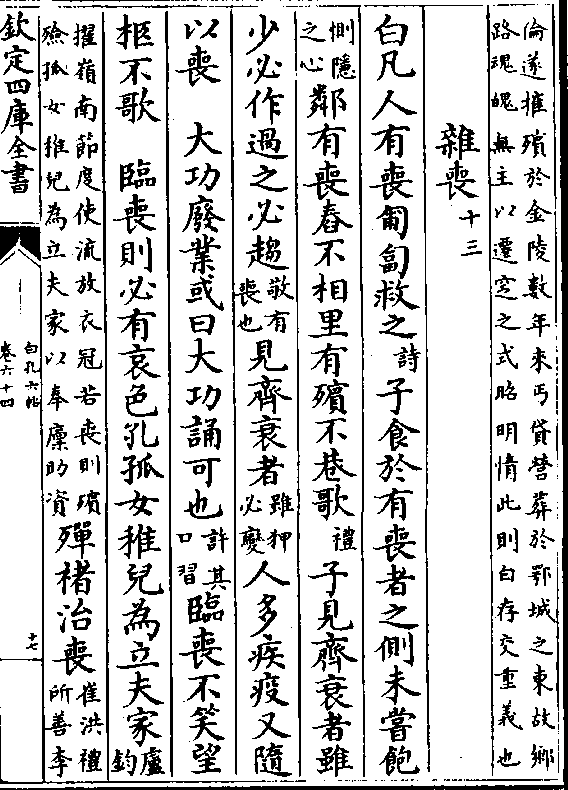 倫遂權殯於金陵數年來丐貸營葬於鄂城之東故鄉
路魂魄無主以遷窆之式昭明情此則白存交重義也
雜喪十三
白凡人有喪匍匐救之詩子食於有喪者之側未嘗飽
惻隱之心鄰有喪舂不相里有殯不巷歌禮子見齊衰者雖
少必作過之必趨敬有喪也見齊衰者雖狎必變人多疾疫又隨
以喪 大功廢業或曰大功誦可也許其口習臨喪不笑望
柩不歌 臨喪則必有哀色孔孤女稚兒為立夫家盧鈞
擢嶺南節度使流放衣冠若喪則殯
殮孤女稚兒為立夫家以奉廩助資殫褚治喪崔洪禮所善李
欽定四庫全書
白孔六帖
卷六十四
十七